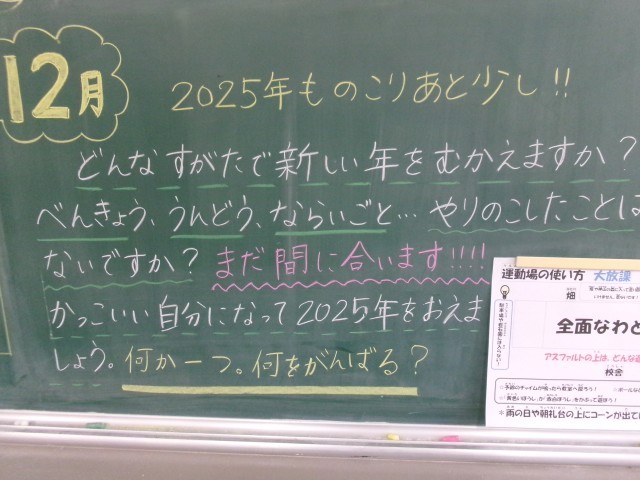 12月
2025年ものこりあと少し!!
どんなすがたで新しい年をむかえますか?
べんきょう、うんどう、ならいごと…やりのこしたことは
ないですか?まだ間に合います!!!!
かっこいい自分になって2025年をおえま
しょう。何か一つ。何をがんばる?
運動場の使い方 大放課
畑
全面なわと
アスファルトの上は、どんな遊
校舎
*雨の日や朝礼台の上にコーンが出てい